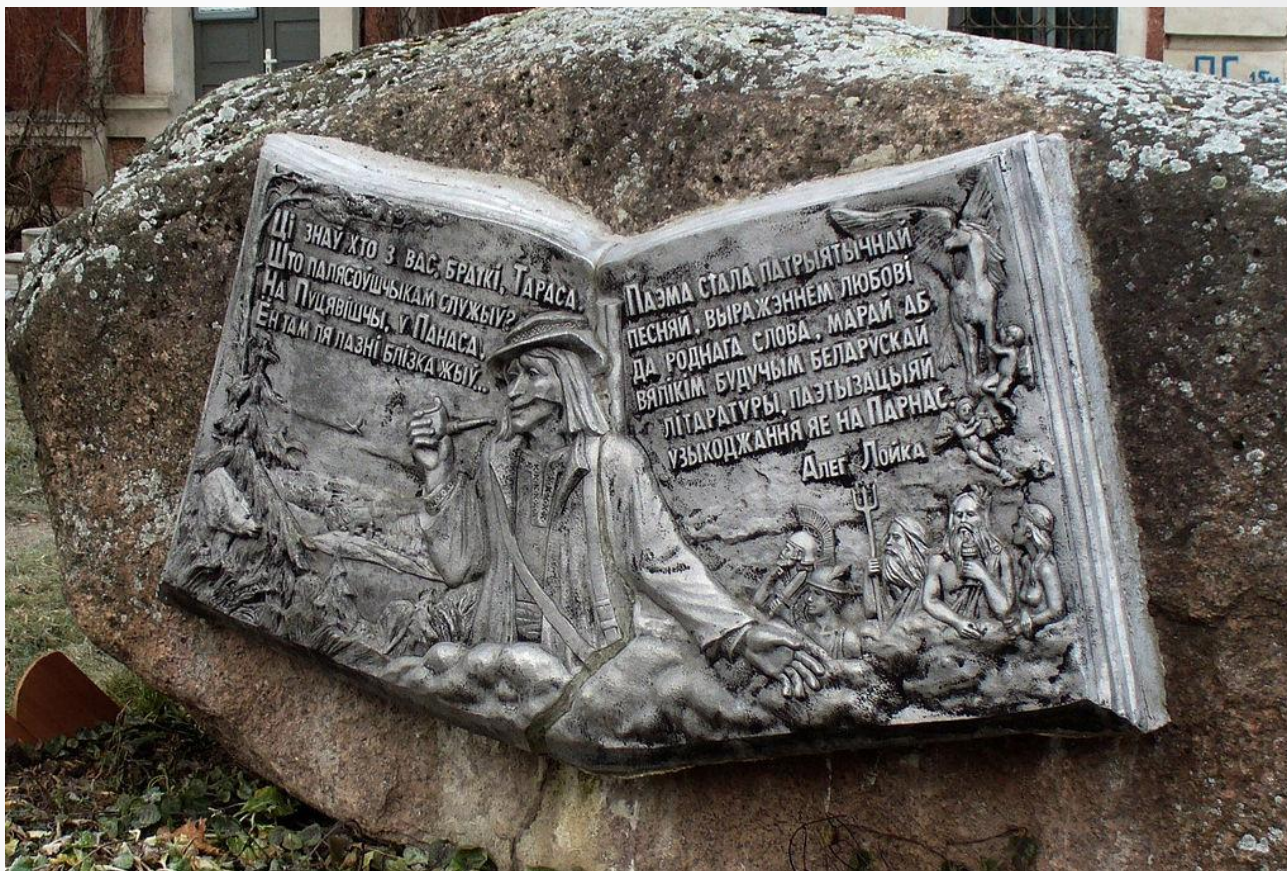 Ці знаў хто з вас, браткі, Тараса
Што палясоўшчыкам служыў?
На Пуцявішчы, у Панаса,
Ён там ля лазні блізка жыў...
Паэма стала патрыятычнай
песняй, выражэннем любові
да роднага слова, марай аб
вялікім будучым беларускай
літаратуры, паэтызацыяй
узыходжання яе на Парнас.
Алег Лойка